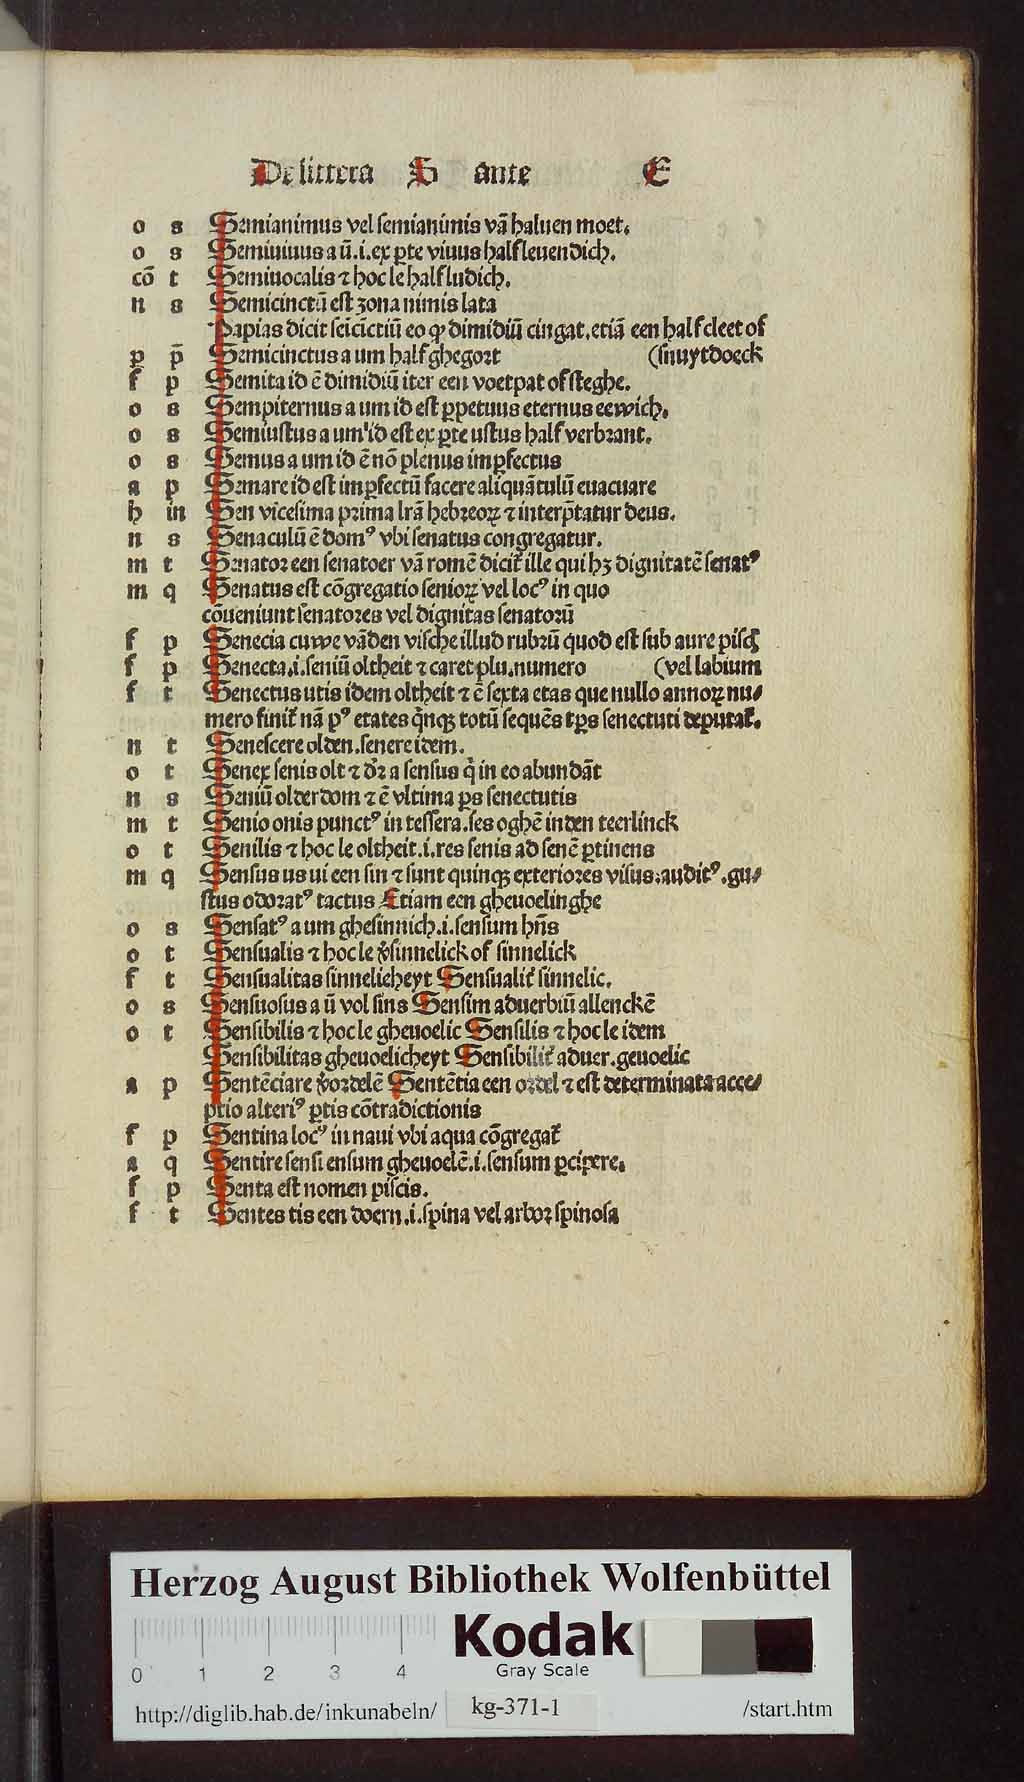 De littera S ante E
o s Semianimus vel semianimis vā haluen moet.
o s Semiuiuus a ū.i.ex ꝑte viuus half leuendich.
cō t Semiuocalis ⁊ hoc le half ludich.
n s Semicinctū est zona nimis lata
Papias dicit seicīctiū eo ꝙ dimidiū cingat.etiā een half cleet of
p p̄ Semicinctus a um half ghegort (snuytdoeck
f p Semita id ē dimidiū iter een voetpat of steghe.
o s Sempiternus a um id est ꝑpetuus eternus eewich.
o s Semiustus a um id est ex ꝑte ustus half verbrant.
o s Semus a um id ē nō plenus imꝑfectus
a p Semare id est imꝑfectū facere aliquātulū euacuare
h in Sen vicesima prima lrā hebreoꝝ ⁊ interp̄tatur deus.
n s Senaculū ē domꝰ vbi senatus congregatur.
m t Senator een senatoer vā romē dicit̄ ille qui hꝫ dignitatē senatꝰ
m q Senatus est cōgregatio senioꝝ vel locꝰ in quo
cōueniunt senatores vel dignitas senatorū
f p Senecia cuwe vāden vische illud rubrū quod est sub aure pisc
f p Senecta.i.seniū oltheit ⁊ caret plu.numero (vel labium
f t Senectus utis idem oltheit ⁊ ē sexta etas que nullo annoꝝ nu⸗
mero finit̄ nā pꝰ etates q̄nqꝫ totū sequēs tp̄s senectuti deputat̄.
n t Senescere olden.senere idem.
o t Senex senis olt ⁊ dr̄ a sensus q̄ in eo abundāt
n s Seniū olderdom ⁊ ē vltima ꝑs senectutis
m t Senio onis punctꝰ in tessera.ses oghē in den teerlinck
o t Senilis ⁊ hoc le oltheit.i.res senis ad senē ꝑtinens
m q Sensus us ui een sin ⁊ sunt quinqꝫ exteriores visus.auditꝰ.gu⸗
stus odoratꝰ tactus Etiam een gheuoelinghe
o s Sensatꝰ a um ghesinnich.i.sensum hn̄s
o t Sensualis ⁊ hoc le v̄sinnelick of sinnelick
f t Sensualitas sinnelicheyt Sensualit̄ sinnelic.
o s Sensuosus a ū vol sins Sensim aduerbiū allenckē
o t Sensibilis ⁊ hoc le gheuoelic Sensilis ⁊ hoc le idem
Sensibilitas gheuoelicheyt Sensibilit̄ aduer.geuoelic
a p Sentēciare v̄ordelē Sentētia een ordel ⁊ est determinata acce⸗
ptio alteriꝰ ꝑtis cōtradictionis
f p Sentina locꝰ in naui vbi aqua cōgregat̄
a q Sentire sensi ensum gheuoelē.i.sensum ꝑcipere.
f p Senta est nomen piscis.
f t Sentes tis een doern.i.spina vel arbor spinosa
Herzog August Bibliothek Wolfenbüttel
Kodak
Gray Scale
0 1 2 3 4
http://diglib.hab.de/inkunabeln/ kg-371-1 /start.htm